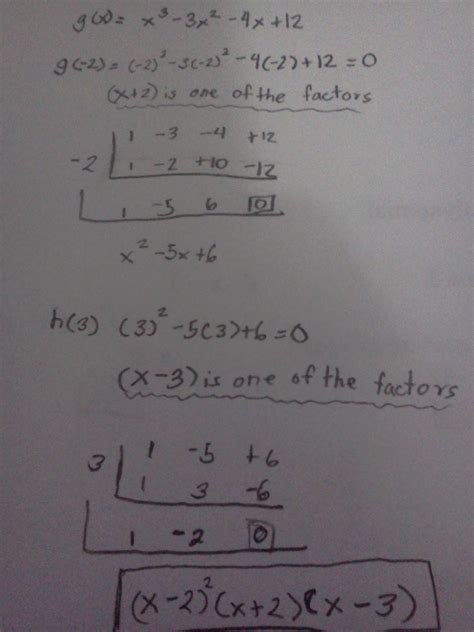 g(x)= x³-3x²-4x+12
g(-2)= (-2)³-3(-2)²-4(-2)+12=0
(x+2) is one of the factors
1 -3 -4 +12
-2 1 -2 +10 -12
1 -5 6 0
x²-5x+6
h(3) (3)²-5(3)+6=0
(x-3) is one of the factors
3 1 -5 +6
1 3 -6
1 -2 0
(x-2)²(x+2)(x-3)